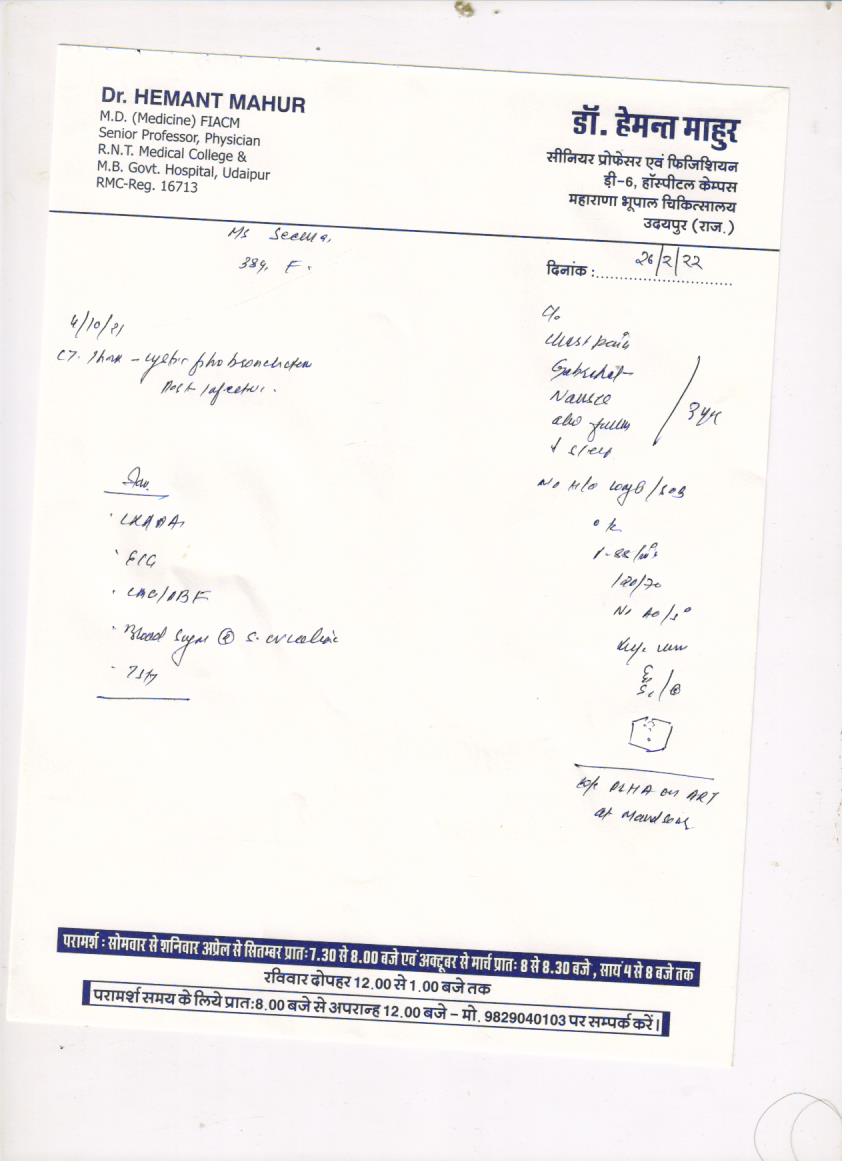 Dr. HEMANT MAHUR
M.D. (Medicine) FIACM
Senior Professor, Physician
R.N.T. Medical College &
M.B. Govt. Hospital, Udaipur
RMC-Reg. 16713
डॉ. हेमन्त माहुर
सीनियर प्रोफेसर एवं फिजिशियन
ड़ी-6, हॉस्पीटल केम्पस
महाराणा भूपाल चिकित्सालय
उदयपुर (राज.)
Ms Seema.
38y, F.
दिनांक : २६/२/२२
4/10/21
CT. Thorax - cystic
Post infective.
Inv.
ECG
Blood Sugar S. creatinine
TSH
C/o
Chest pain
Gabrahat
Nausea
↓ sleep
No H/o cough/SOB
O/E
P-88/min
120/70
K/c PLHA on ART
at Mandsaur
परामर्श : सोमवार से शनिवार अप्रेल से सितम्बर प्रातः 7.30 से 8.00 बजे एवं अक्टूबर से मार्च प्रातः 8 से 8.30 बजे , सायं 4 से 8 बजे तक
रविवार दोपहर 12.00 से 1.00 बजे तक
परामर्श समय के लिये प्रातः 8.00 बजे से अपरान्ह 12.00 बजे – मो. 9829040103 पर सम्पर्क करें।